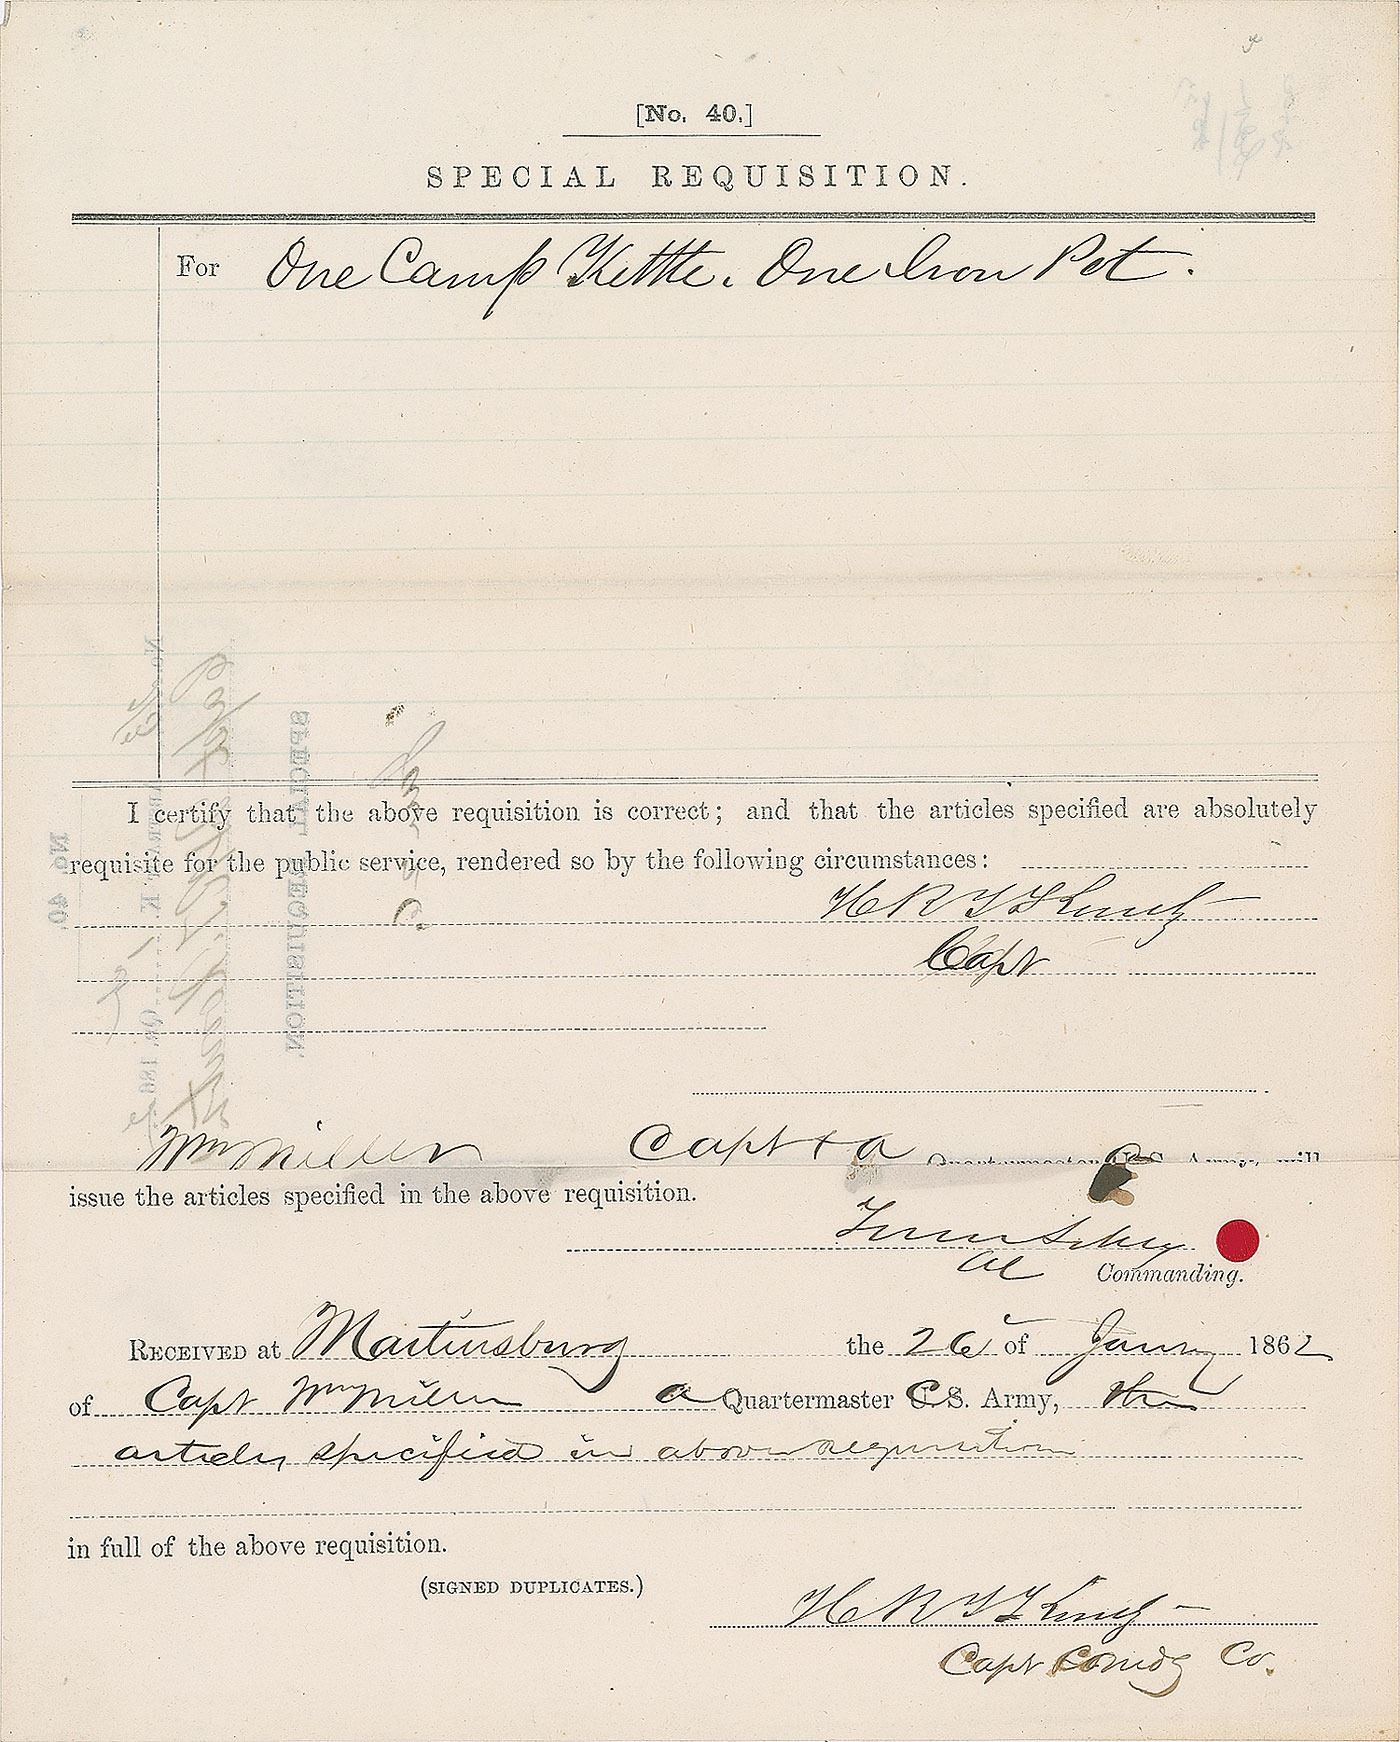 [No. 40.]
SPECIAL REQUISITION.
For One Camp Kettle. One Iron Pot.
I certify that the above requisition is correct; and that the articles specified are absolutely
requisite for the public service, rendered so by the following circumstances:
Capt
Wm Miller Capt & a Quartermaster C.S. Army, will
issue the articles specified in the above requisition.
Commanding.
RECEIVED at Martinsburg the 26 of January 1862
of Capt Wm Miller a Quartermaster C.S. Army, the
articles specified in above requisition
in full of the above requisition.
(SIGNED DUPLICATES.)
Capt Comdg Co.